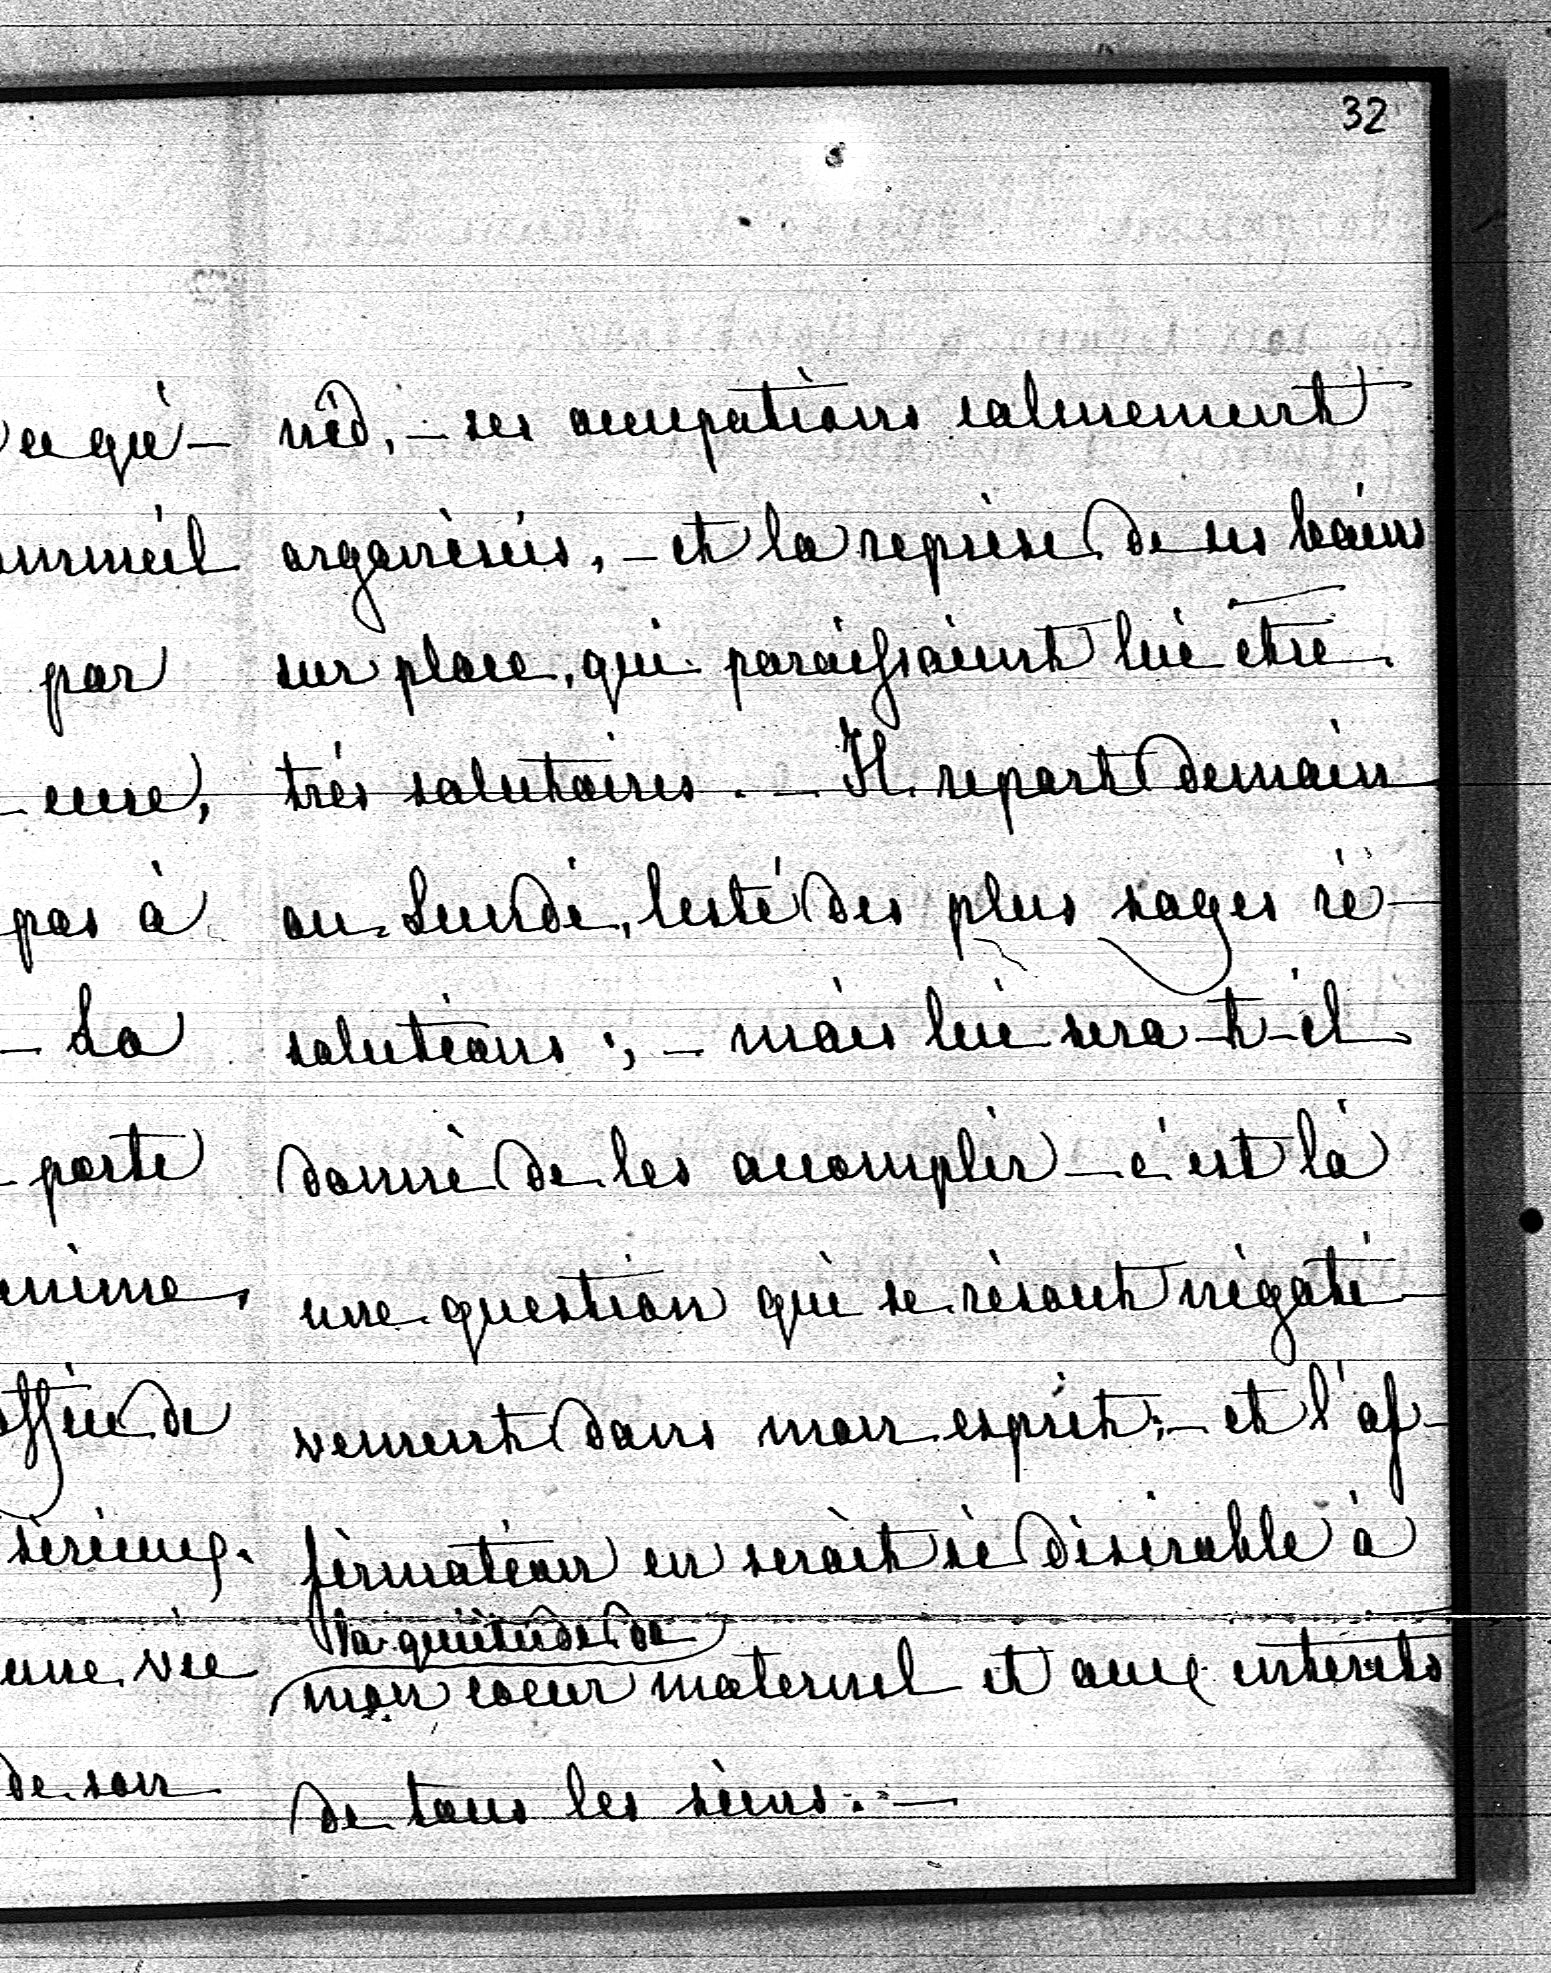 32
nid, – ses occupations calmement
organisées, – et la reprise de ses bains
sur place, qui paraissaient lui être
très salutaires. – Il repart demain
ou Lundi, lesté des plus sages ré-
solutions ; – mais lui sera-t-il
donné de les accomplir – c'est là
une question qui se résout négati-
vement dans mon esprit ; – et l'af-
firmation en serait si désirable à
la quiétude de
mon coeur maternel et aux intérêts
de tous les siens. –
par
pas à
– La
porte
de
une vie
de son